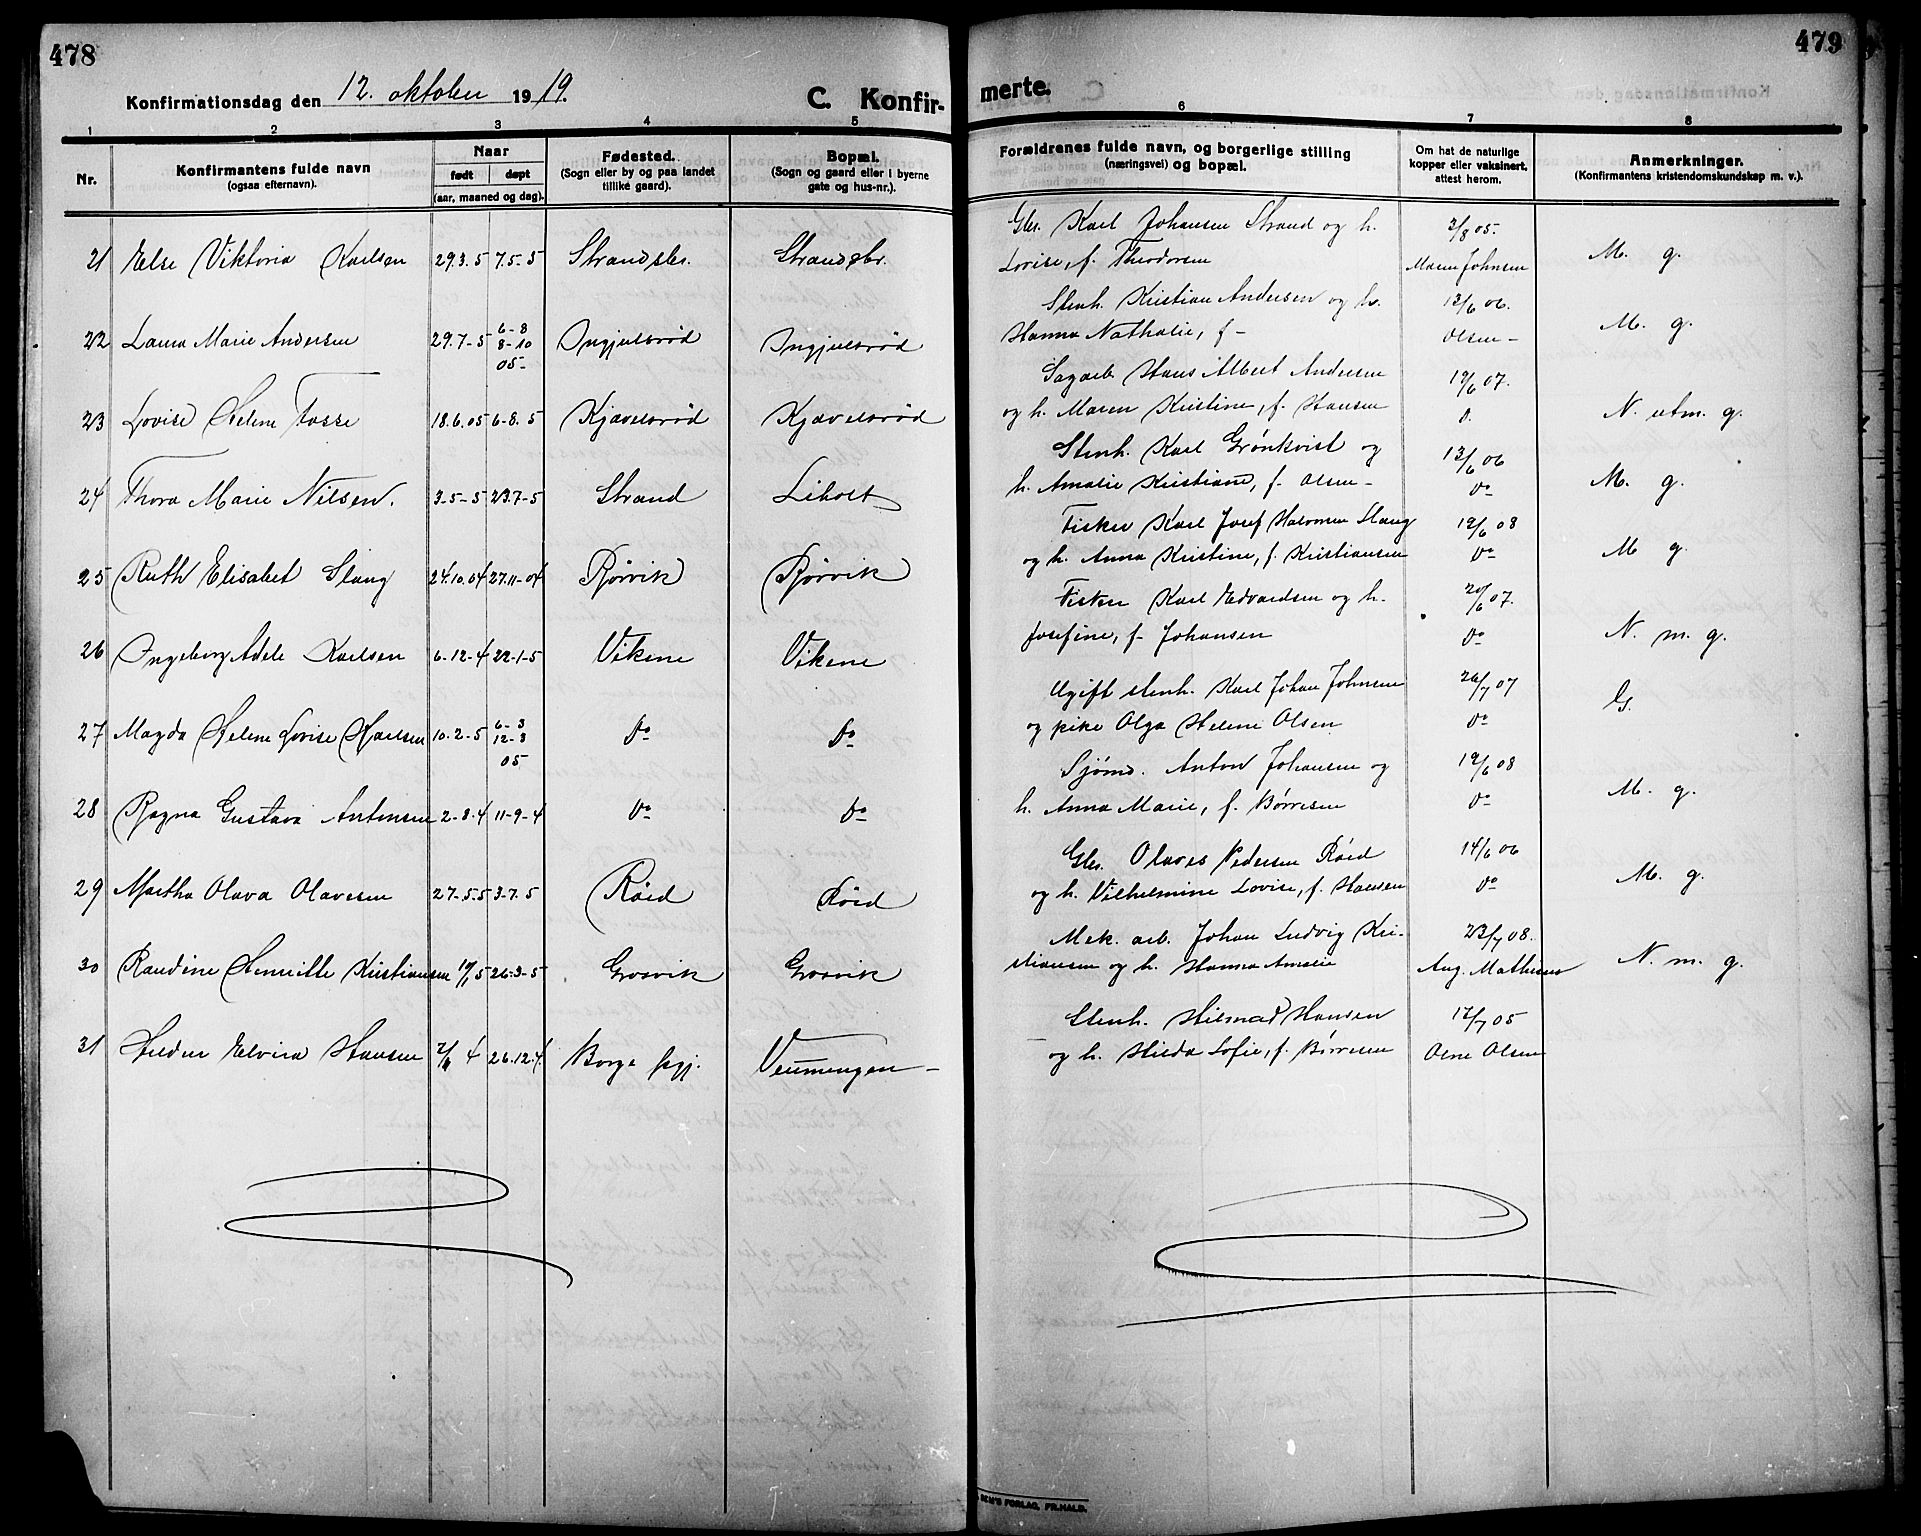 478
Konfirmationsdag den 12. oktober 1919.
C. Konfir-
1 2 3 4 5
Nr.
Konfirmantens fulde navn
(ogsaa efternavn).
Naar
født døpt
(aar, maaned og dag).
Fødested.
(Sogn eller by og paa landet
tillike gaard).
Bopæl.
(Sogn og gaard eller i byerne
gate og hus-nr.).
21 Else Viktoria Karlsen 29.3.5 7.5-5 Strandsbr. Strandsbr.
22 Laura Marie Andersen 29.7-5 6-8 8-10 05- Ingjulsrød Ingjulsrød
23 Lovise Helene Fosse 18.6.05 6-8.5 Kjævelsrød Kjævelsrød
24 Thora Marie Nilsen. 3-5-5 23.7-5 Strand Liholt
25 Ruth Elisabet Slang 24.10.04 27.11-04 Rørvik Rørvik
26 Ingeborg Adele Karlsen 6-12-4 22-1-5 Vikene Vikene
27 Magda Helene Lovise Karlsen 10.2-5 6-3 12-3 05 Do Do
28 Ragna Gustava Antonsen 2-8.4 11-9-4 Do Do
29 Martha Olava Olavesen 27-5.5 3-7.5 Røed Røed
30 Randine Henriette Kristiansen 10/1 5 26-3-5 Gresvik Gresvik
31 Hildur Elvira Hansen 4 26.12.4. Borge psgj. Veumengen -
479
merte.
6 7 8
Forældrenes fulde navn, og borgerlige stilling
(næringsvei) og bopæl.
Om hat de naturlige
kopper eller vaksinert,
attest herom.
Anmerkninger.
(Konfirmantens kristendomskundskap m. v.).
Gbr. Karl Johansen Strand og h. 2/8 05.
Lovise, f. Theodorsen Maren Johnsen M. g.
Stenh. Kristian Andersen og h. 13/6 06.
Hanna Nathalie, f - Olsen - M. g.
Sagarb. Hans Albert Andersen 19/6 07.
og h. Maren Kristine, f. Hansen D. N. utm. g.
Stenh. Karl Grønkvist og 13/6 06
h. Amalie Kristiane, f. Olsen - Do M. g.
Fisker Karl Josef Halvorsen Slang 19/6 08
og h. Anna Kristine, f. Kristiansen Do M g.
Fisker Karl Edvardsen og h. 20/6 07.
Josefine, f. Johansen Do N. m. g.
Ugift stenh. Karl Johan Johnsen 26/7 07
og pike Olga Helene Olsen Do G.
Sjømd. Anton Johansen og 19/6 08
h. Anna Marie, f. Børresen Do M. g.
Gbr. Olaves Pedersen Røed 14/6 06
og h. Vilhelmine Lovise, f. Hansen Do M. g.
Mek. arb. Johan Ludvig Kri- 23/7 08.
stiansen og h. Hanna Amalie Aug. Mathisen N. m. g.
Stenh. Hilmad Hansen 17/7 05
og h. Hilda Sofie, f. Børresen Arne Olsen
FORLAG, FR.HALD.